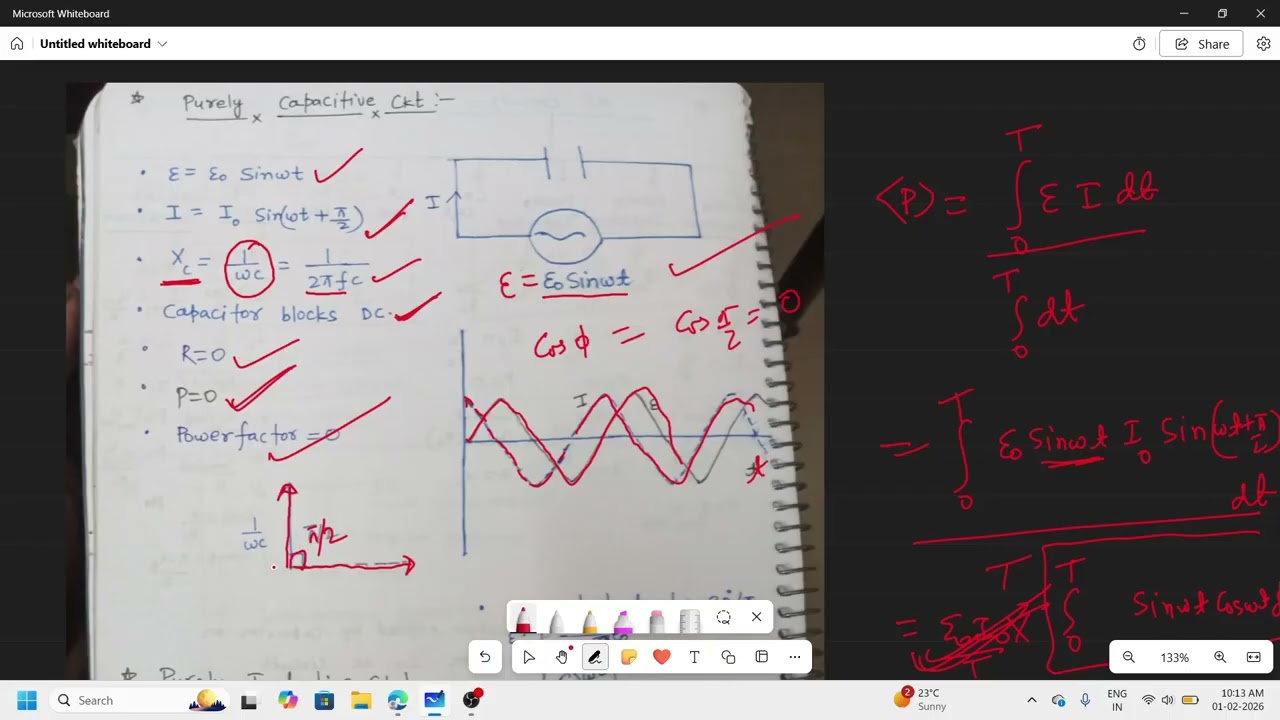 Microsoft Whiteboard
Untitled whiteboard
Share
* Purely Capacitive Ckt :-
• ε = ε₀ Sinωt
• I = I₀ Sin(ωt + π/2)
• Xc = 1/ωc = 1/2πfc
• Capacitor blocks DC.
• R=0
• P=0
• Power factor = 0
I
ε = ε₀ Sinωt
Cos ϕ = Cos π/2 = 0
I
ε
t
1/ωc
π/2
⟨P⟩ = ∫₀ᵀ ε I dt
∫₀ᵀ dt
= ∫₀ᵀ ε₀ Sinωt I₀ Sin(ωt+π/2) dt
T
= ε₀ I₀ ∫₀ᵀ Sinωt Cosωt
T
133%
Search
2
23°C
Sunny
ENG
IN
10:13 AM
01-02-2026